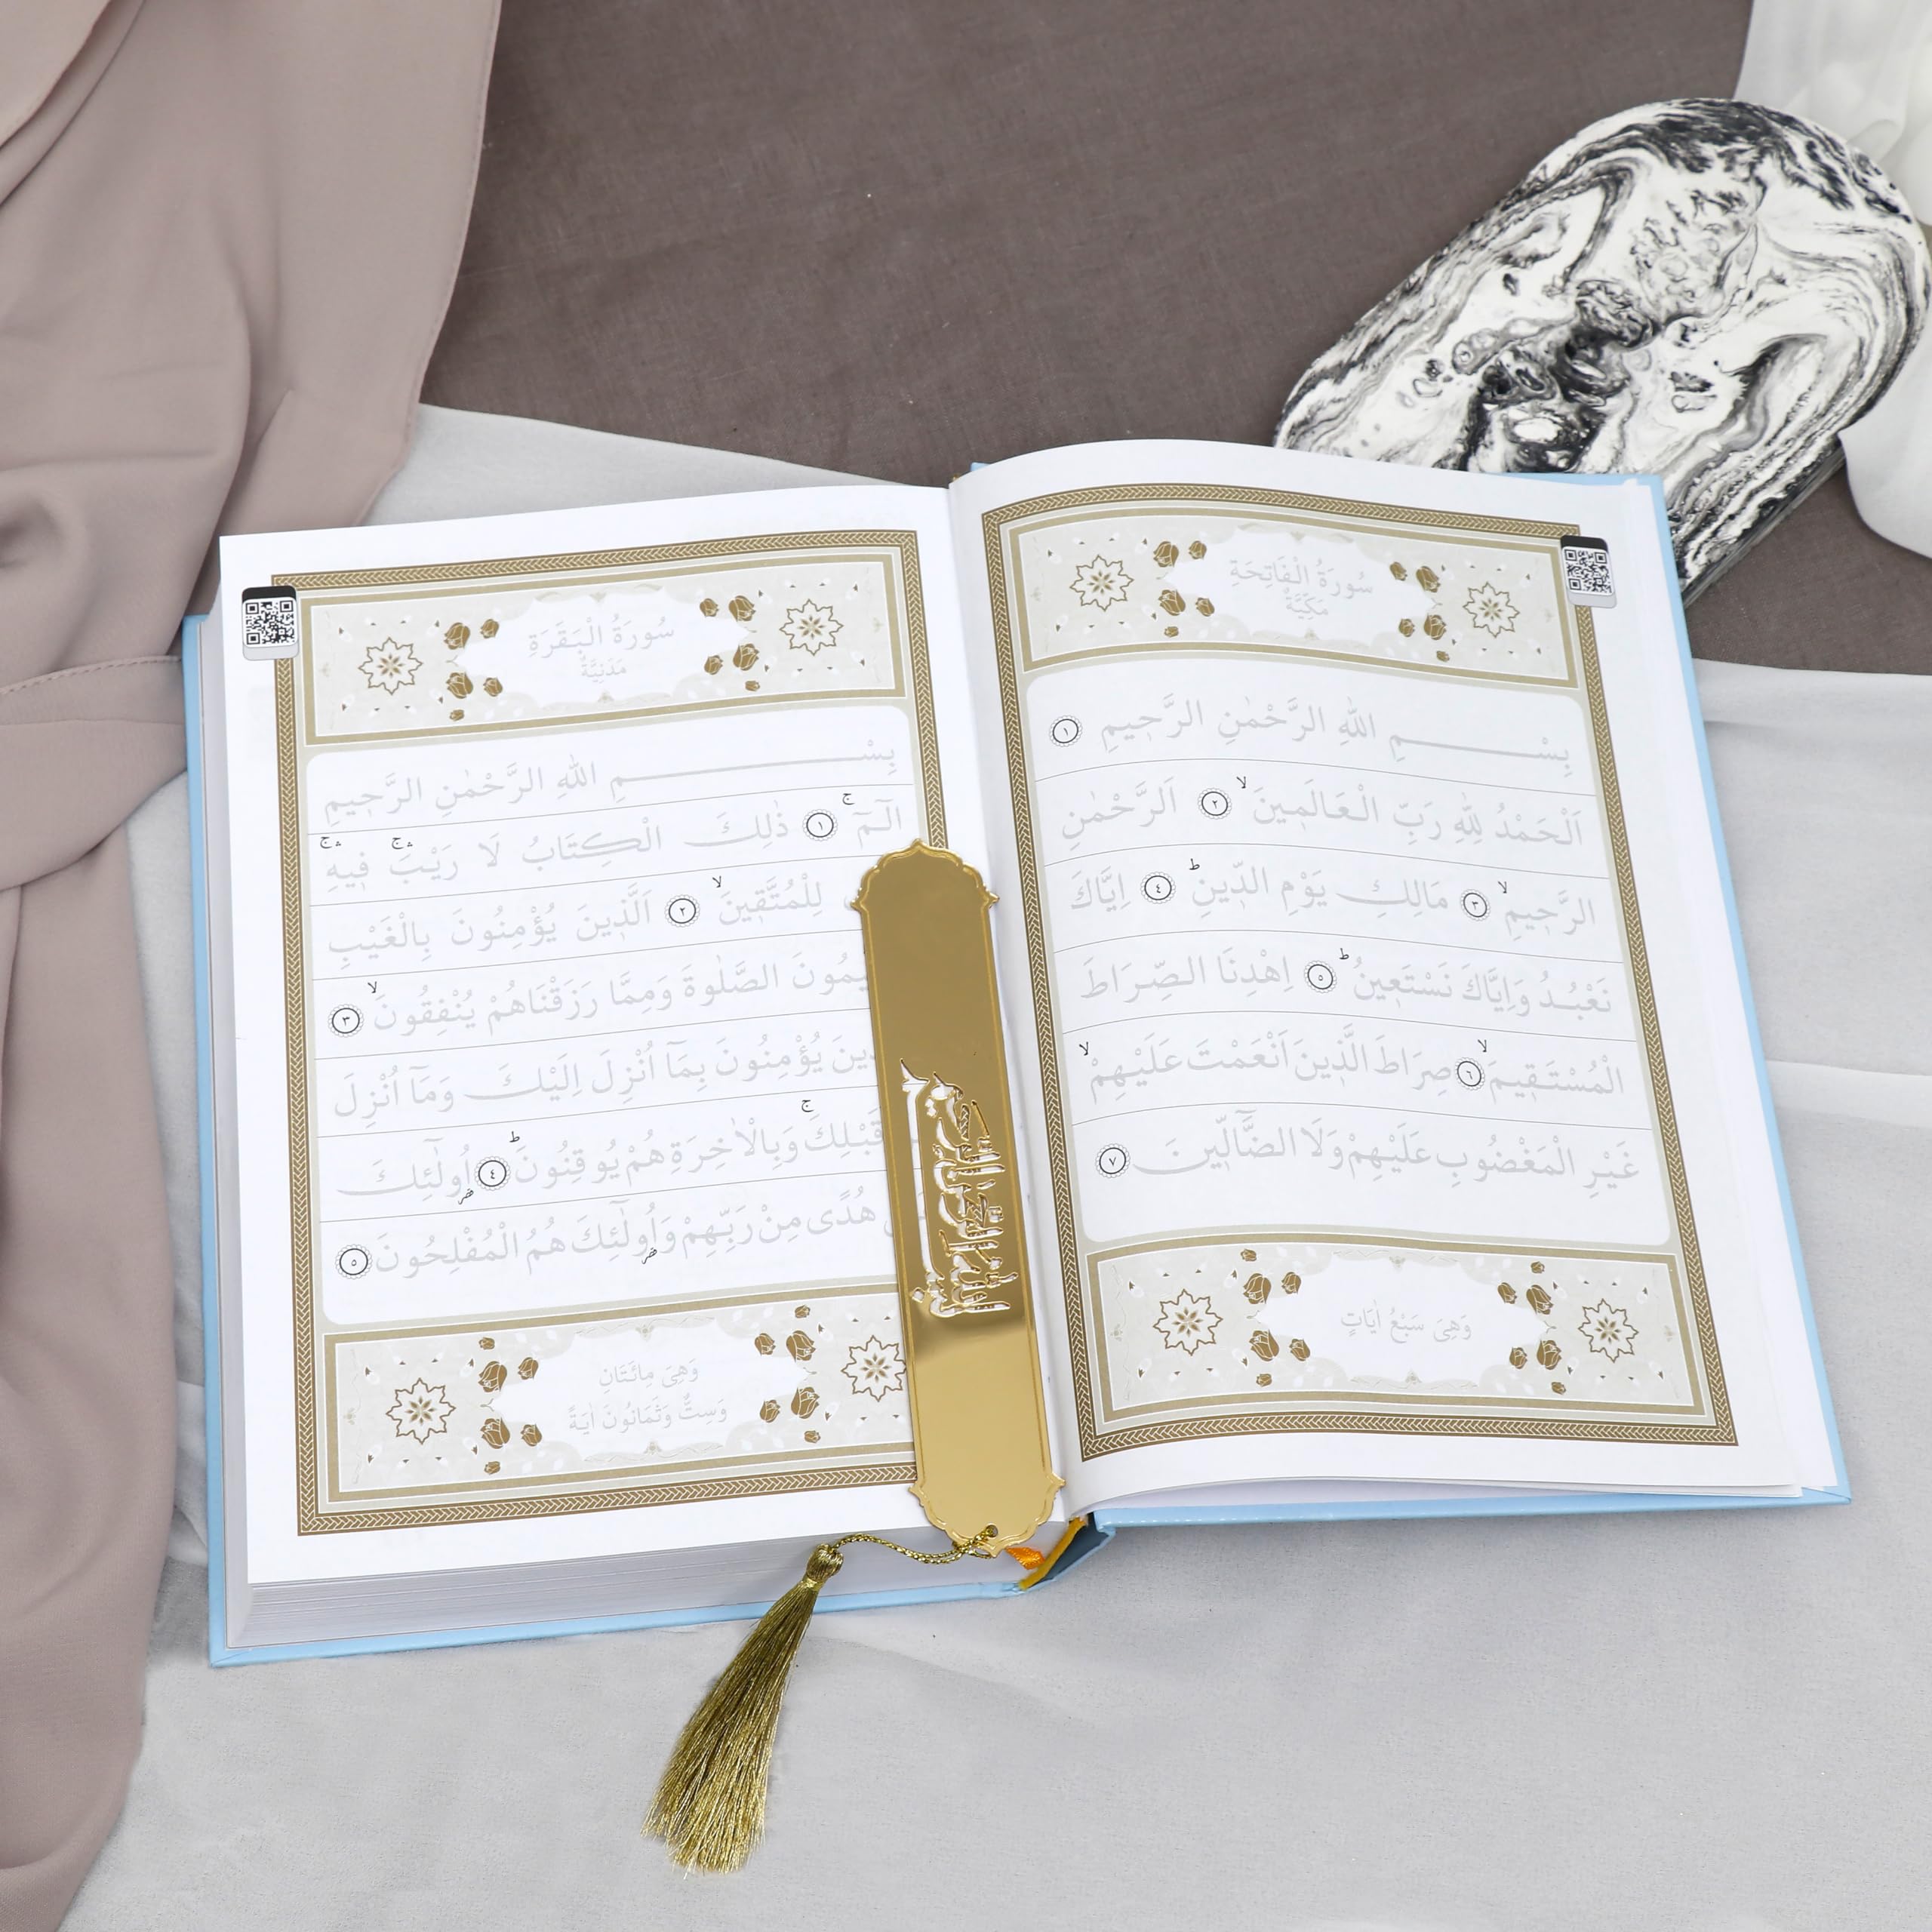 سُورَةُ الْفَاتِحَةِ
مَكِّيَّةٌ
بِسْمِ اللهِ الرَّحْمٰنِ الرَّحِيمِ ١
اَلْحَمْدُ لِلّٰهِ رَبِّ الْعَالَمِينَ ۙ ٢ اَلرَّحْمٰنِ
الرَّحِيمِ ۙ ٣ مَالِكِ يَوْمِ الدِّينِ ۜط ٤ اِيَّاكَ
نَعْبُدُ وَاِيَّاكَ نَسْتَعِينُ ط ٥ اِهْدِنَا الصِّرَاطَ
الْمُسْتَقِيمَ ۙ ٦ صِرَاطَ الَّذِينَ اَنْعَمْتَ عَلَيْهِمْ ۙ
غَيْرِ الْمَغْضُوبِ عَلَيْهِمْ وَلَا الضَّٓالِّينَ ٧
وَهِىَ سَبْعُ اٰيَاتٍ
سُورَةُ الْبَقَرَةِ
مَدَنِيَّةٌ
بِسْمِ اللهِ الرَّحْمٰنِ الرَّحِيمِ
الٓمٓ ۚ ١ ذٰلِكَ الْكِتَابُ لَا رَيْبَ ۛۚ فِيهِ ۛۚ
لِلْمُتَّقِينَ ۙ ٢ اَلَّذِينَ يُؤْمِنُونَ بِالْغَيْبِ
الصَّلٰوةَ وَمِمَّا رَزَقْنَاهُمْ يُنْفِقُونَ ۙ ٣
يُؤْمِنُونَ بِمَٓا اُنْزِلَ اِلَيْكَ وَمَٓا اُنْزِلَ
قَبْلِكَ ۚ وَبِالْاٰخِرَةِ هُمْ يُوقِنُونَ ط ٤ اُولٰٓئِكَ
هُدًى مِنْ رَبِّهِمْ وَاُولٰٓئِكَ هُمُ الْمُفْلِحُونَ ٥
وَهِىَ مِائَتَانِ
وَسِتٌّ وَثَمَانُونَ اٰيَةً
بسم الله الرحمن الرحيم